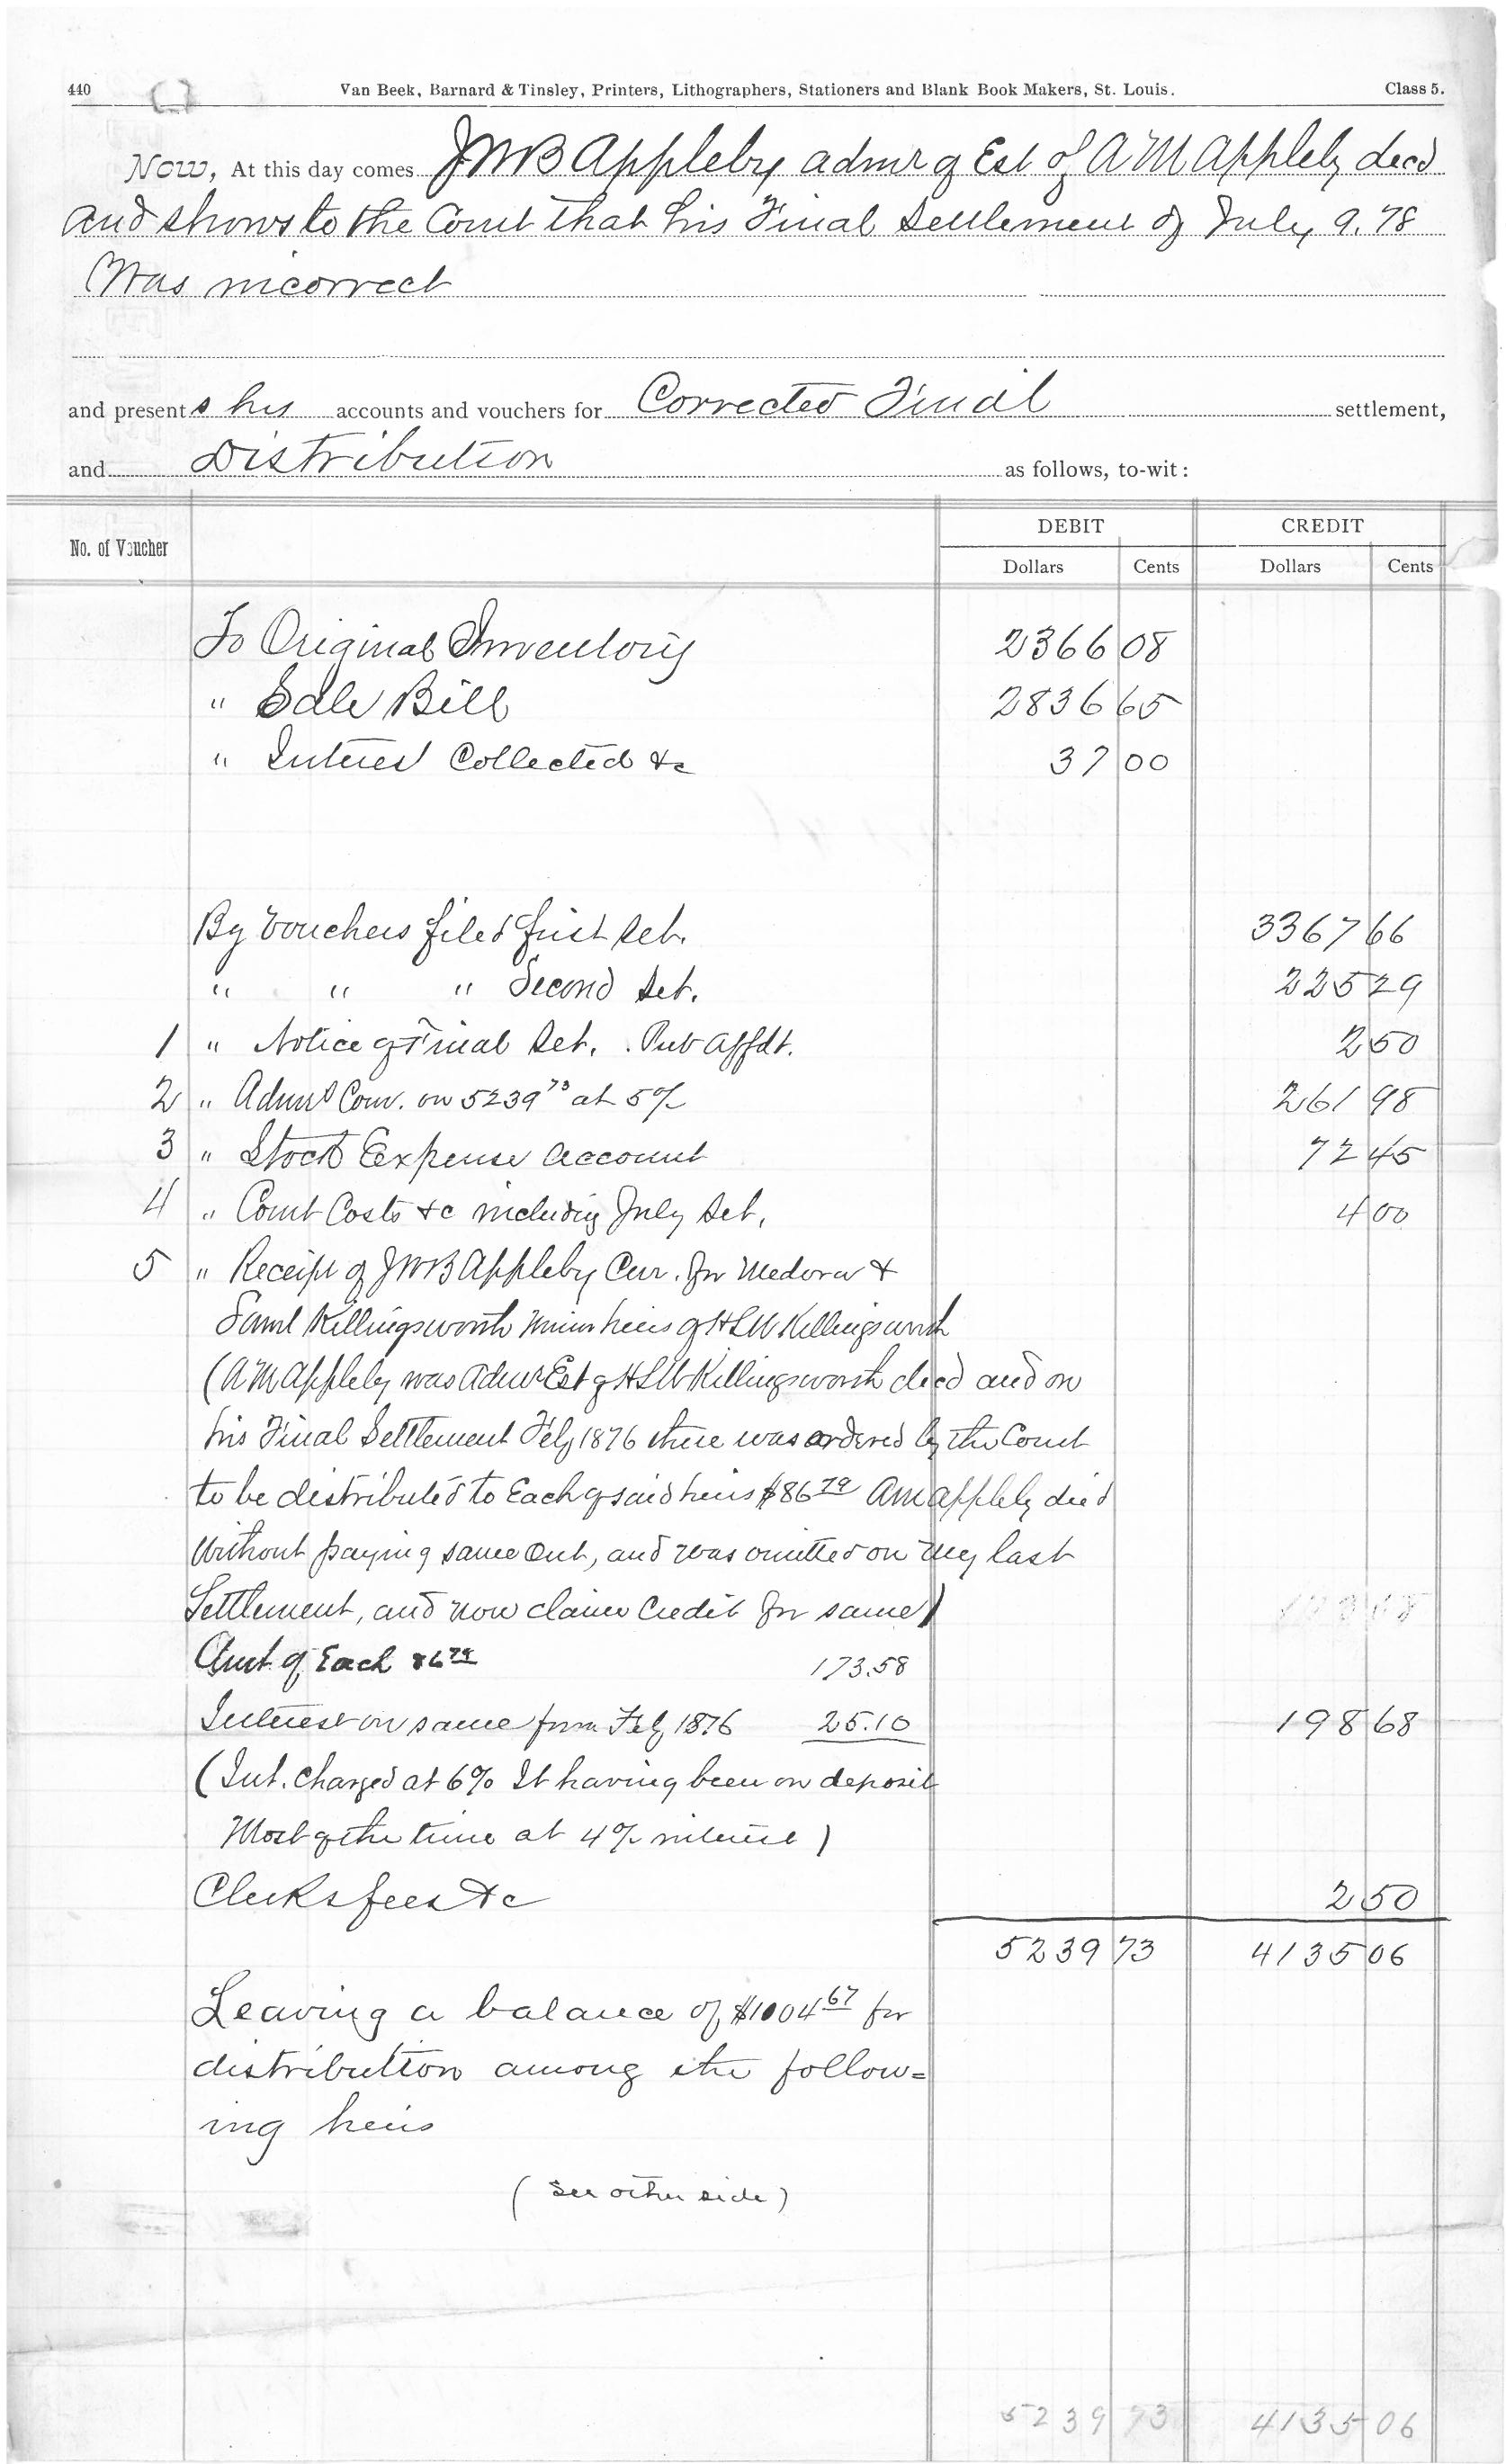 440 Van Beek, Barnard & Tinsley, Printers, Lithographers, Stationers and Blank Book Makers, St. Louis. Class 5.
Now, At this day comes JWB Appleby admr of Est of A M Appleby decd
and shows to the Court that his Final Settlement of July 9. 78
Was incorrect
and presents his accounts and vouchers for Corrected Final settlement,
and Distribution as follows, to-wit:
No. of Voucher DEBIT CREDIT
Dollars Cents Dollars Cents
To Original Inventory 2366 08
" Sale Bill 2836 65
" Interest Collected &c 37 00
By Vouchers filed first Set. 3367 66
" " " Second Set. 225 29
1 " Notice of Final Set. Pub Affdt. 2 50
2 " Admrs Com. on 5239 73 at 5% 261 98
3 " Stock Expense Account 72 45
4 " Court Costs &c including July Set, 4 00
5 " Receipt of JWB Appleby Cur. for Medora &
Saml Killingsworth Minor heirs of H L W Killingsworth
(A M Appleby was Admr Est of H L W Killingsworth decd and on
his Final Settlement Feby 1876 there was ordered by the Court
to be distributed to Each of said heirs $86 79 A M Appleby died
Without paying same Out, and was omitted on my last
Settlement, and now claim Credit for same)
Amt of Each 86 79 173.58
Interest on same from Feby 1876 25.10 198 68
(Int. Charged at 6% It having been on deposit
Most of the time at 4% interest)
Clerks fees &c 2 50
5239 73 4135 06
Leaving a balance of $1004 67 for
distribution among the follow=
ing heirs
(See other side)
5239 73 4135 06